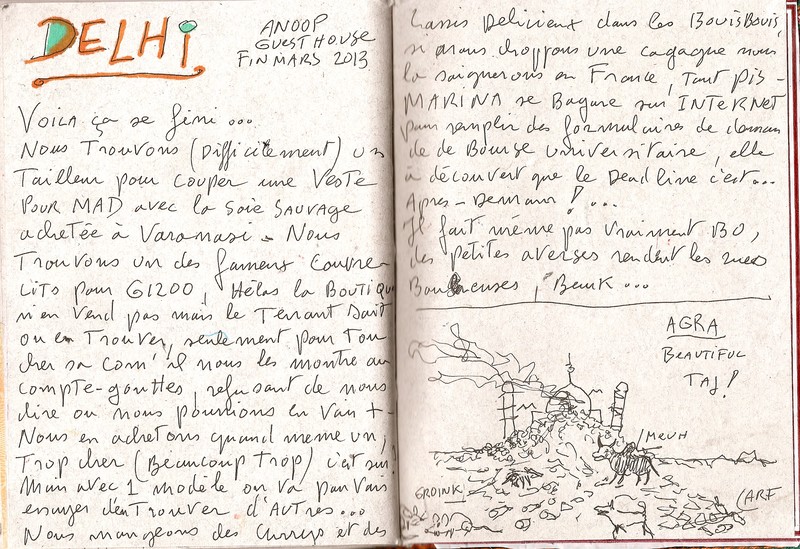 DELHI
ANOOP
GUEST HOUSE
FIN MARS 2013
VOILA ça se fini ...
Nous Trouvons (Difficilement) un
Tailleur pour couper une Veste
POUR MAD avec la Soie SAUVAGE
achetée à Varanasi - Nous
Trouvons un des fameux Couvre-
Lits pour G1200, Hélas la BOUTIQUE
n'en vend pas mais le Tenant Sait
ou en Trouver, seulement pour Tou
cher sa Com' il nous les montre au
compte-gouttes, refusant de nous
dire ou nous pourrions en voir +
Nous en achetons quand meme un,
Trop cher (Beaucoup Trop) c'est sur
Mais avec 1 modèle on va pouvoir
essayer d'en Trouver d'AUTRES...
Nous mangeons des Currys et des
Lassis Delicieux dans les BouisBouis,
si nous choppons une cagagne nous
la soignerons en France, Tant pis -
MARINA se Bagare sur INTERNET
pour remplir des formulaires de deman
de de Bourse universitaire, elle
a découvert que le Dead line c'est...
Apres-Demain ! ...
Il fait même pas vraiment BO,
des petites averses rendent les rues
Boueuses, Beuk ...
AGRA
BEAUTIFUL
TAJ!
MEUH
GROINK
ARF